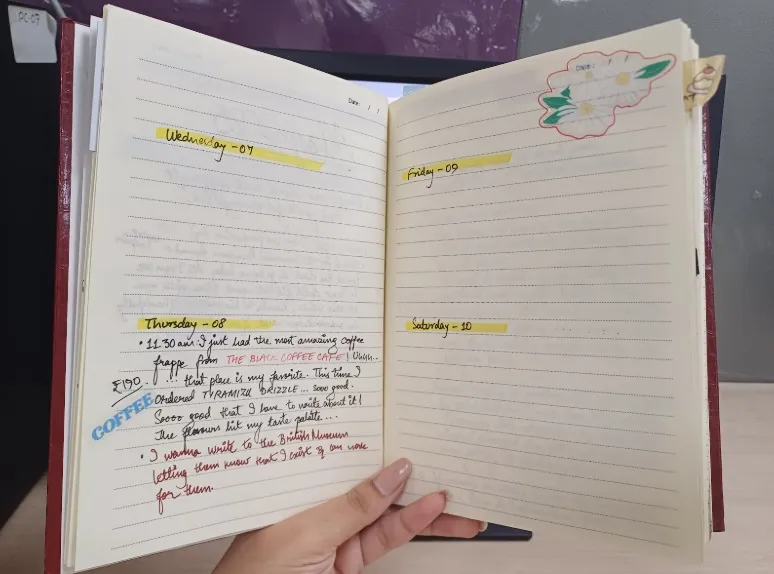 PC-07
Date: / /
Wednesday - 07
Thursday - 08
• 11.30 am. I just had the most amazing coffee
frappe from THE BLACK COFFEE CAFE!
₹190. ... that place is my favorite. This time I
COFFEE
Ordered TYRAMIZU DRIZZLE ... sooo good.
Soooo good that I have to write about it!
The flavours hit my taste palette ...
• I wanna write to the British Museum
letting them know that I exist & can work
for them.
Date: / /
Friday - 09
Saturday - 10